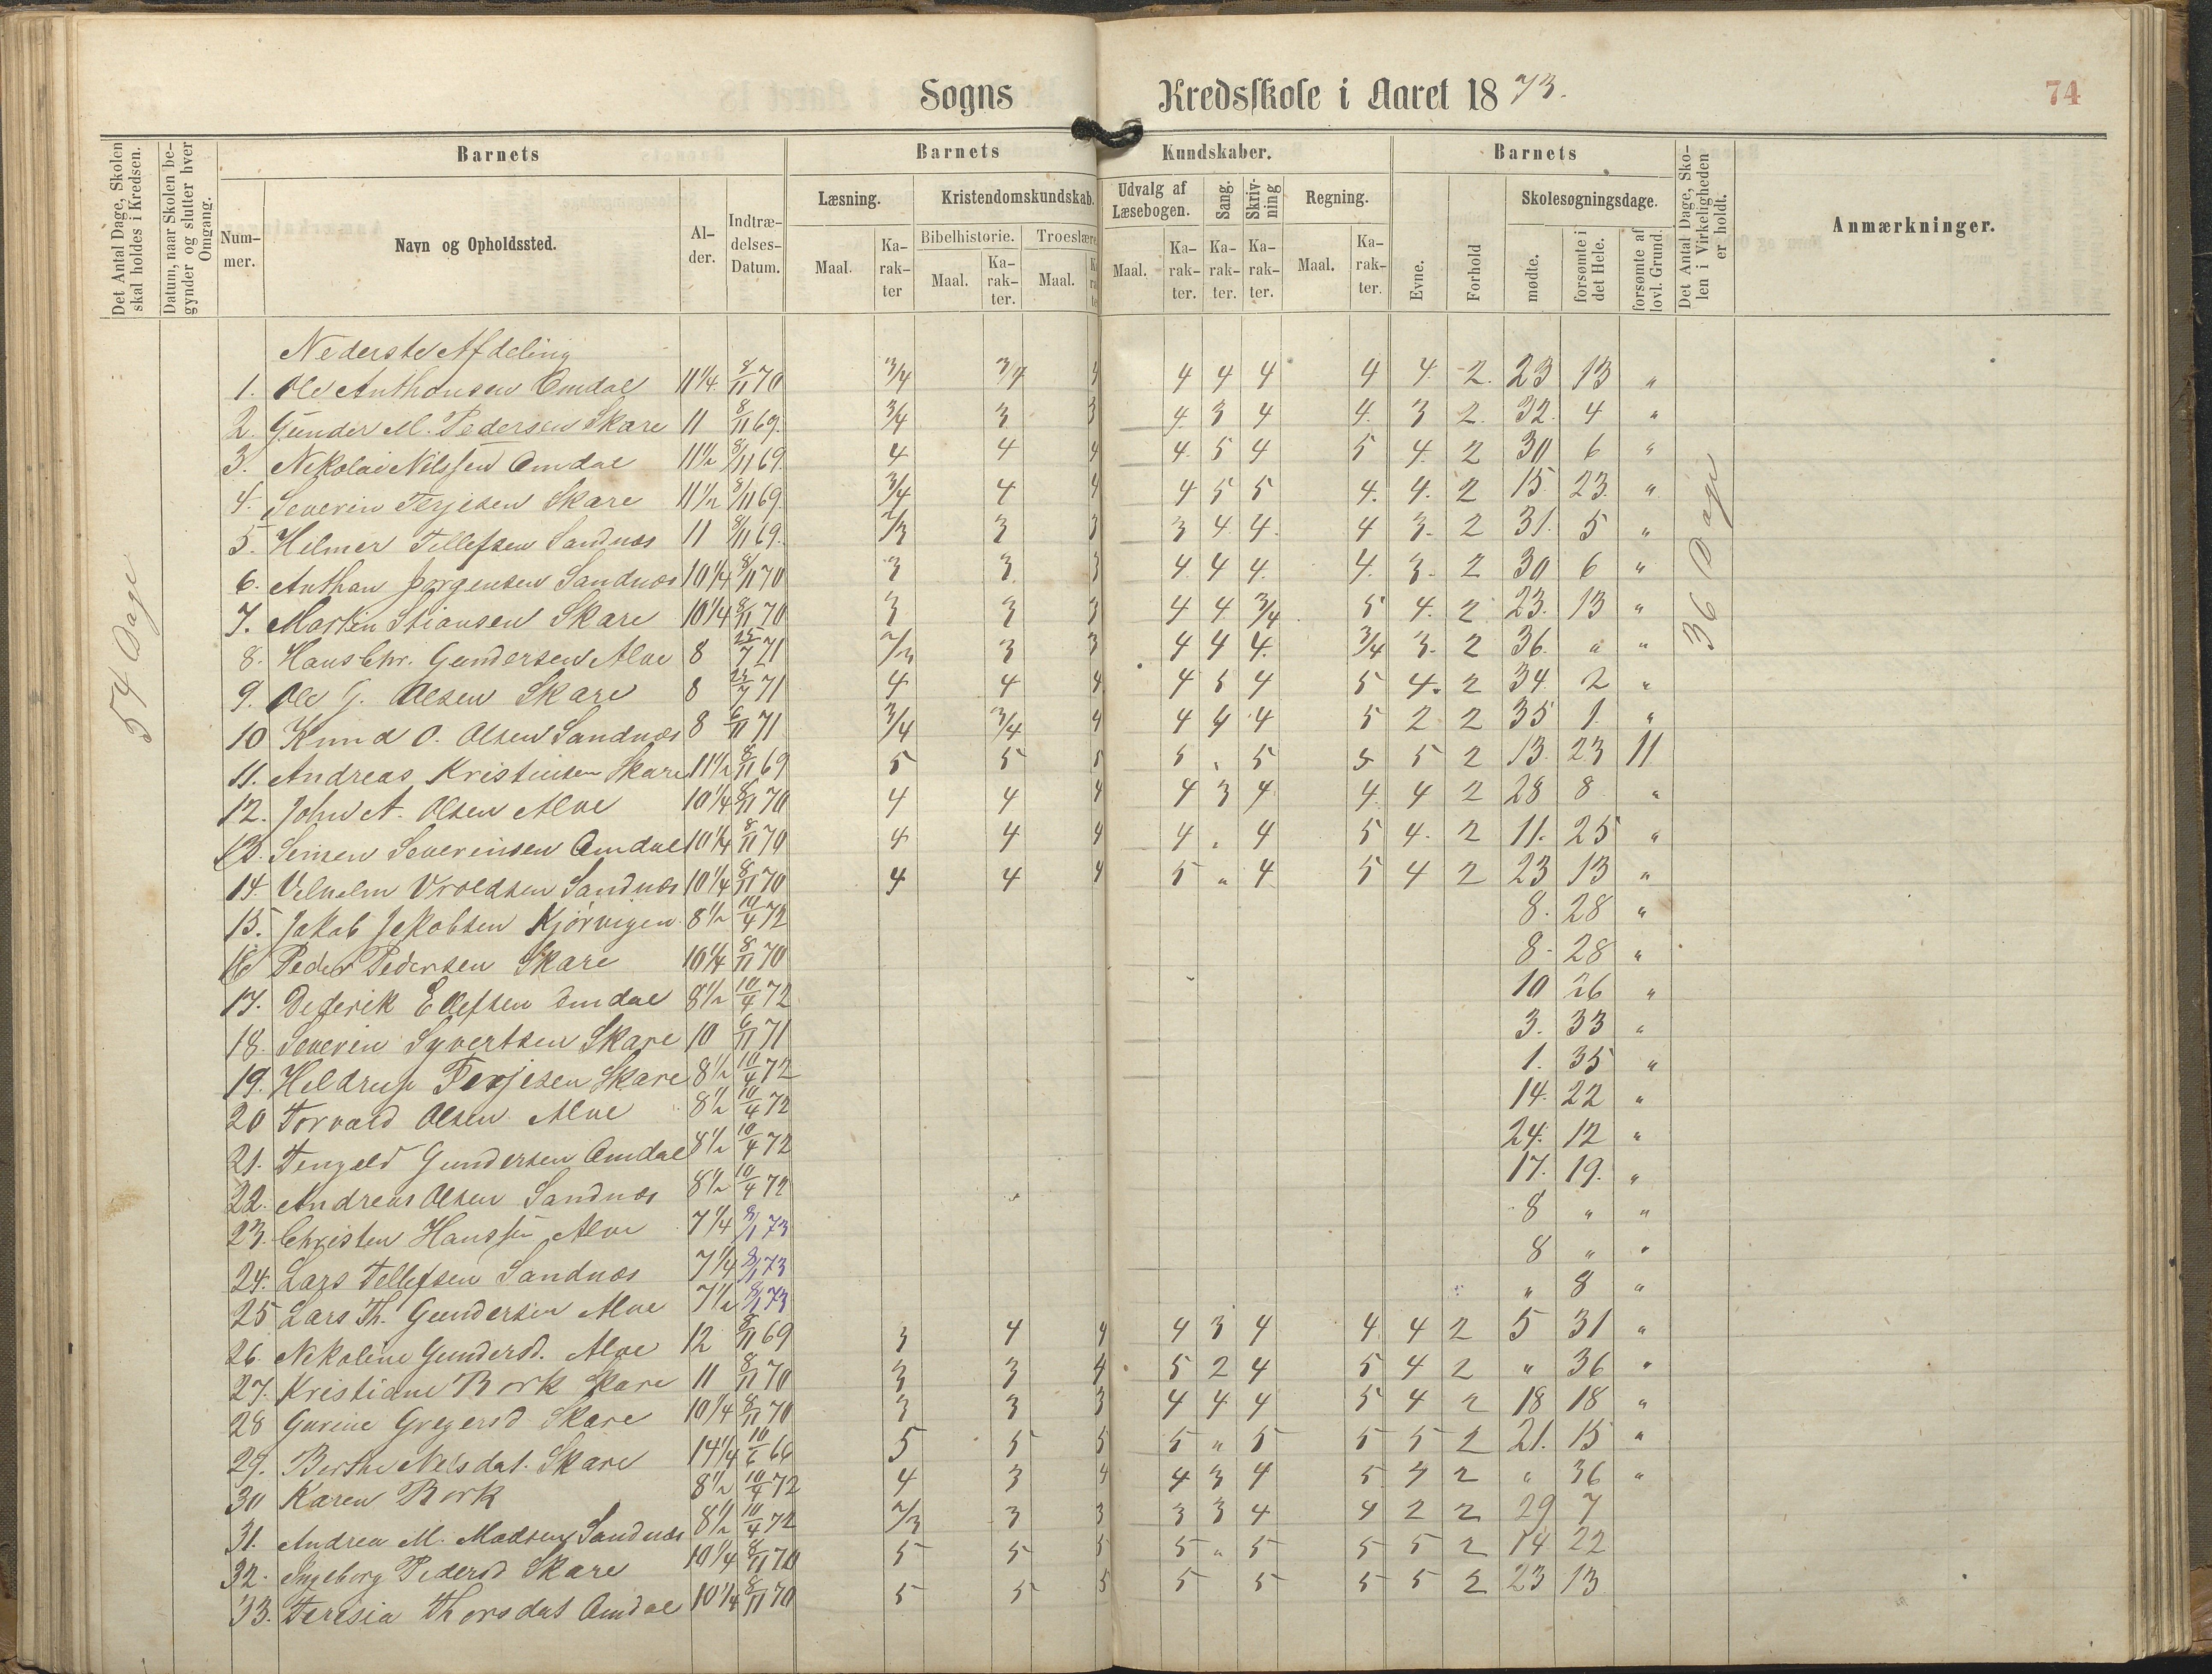 Sogns Kredsskole i Aaret 1873.
74
Det Antal Dage, Skolen skal holdes i Kredsen.
Datum, naar Skolen begynder og slutter hver Omgang.
Barnets Barnets Kundskaber. Barnets
Det Antal Dage, Skolen i Virkeligheden er holdt.
Anmærkninger.
Nummer. Navn og Opholdssted. Alder. Indtrædelses-Datum.
Læsning. Kristendomskundskab. Udvalg af Læsebogen. Sang. Skrivning Regning. Evne. Forhold Skolesøgningsdage.
Bibelhistorie. Troeslære
Maal. Karakter Maal. Karakter. Maal. Maal. Karakter. Karakter. Karakter. Maal. Karakter. mødte. forsømte i det Hele. forsømte af lovl. Grund.
54 Dage
36 Dage
Nederste Afdeling
1. Ole Anthonsen Omdal 11 1/4 8/11 70 3/4 3/4 4 4 4 4 4 4. 2. 23 13 "
2. Gunder M. Pedersen Skare 11 8/11 69. 3/4 3 3 4. 3 4 4. 3 2. 32. 4 "
3. Nikolai Nilssen Omdal 11 1/2 8/11 69. 4 4 4 4. 5 4 5 4. 2 30 6 "
4. Severin Terjesen Skare 11 1/2 8/11 69. 3/4 4 4 4 5 5 4. 4. 2 15. 23. "
5. Helmer Tellefsen Sandnæs 11 8/11 69. 2/3 3 3 3 4. 4. 4 3. 2 31. 5 "
6. Anthon Jørgensen Sandnæs 10 1/4 8/11 70 3 3 3 4. 4 4. 4. 3. 2 30 6 "
7. Martin Stiansen Skare 10 1/4 8/11 70 3 3 3 4 4 3/4 5 4. 2 23. 13 "
8. Hans Chr. Gundersen Alve 8 71 2/3 3 3 4 4 4. 3/4 3. 2 36. " "
9. Ole G. Olsen Skare 8 71 4 4 4 4 5 4 5 4. 2 34 2 "
10 Knud O. Olsen Sandnæs 8 6/11 71 3/4 3/4 4 4 4 4 5 2 2 35 1. "
11. Andreas Kristensen Skare 11 1/2 8/11 69 5 5 5 5 " 5 5 5 2 13. 23 11
12. John A. Olsen Alve 10 1/4 8/11 70 4 4 4 4 3 4 4. 4 2 28 8 "
13. Simen Severinsen Omdal 10 1/4 8/11 70 4 4 4 4 " 4 5 4. 2 11. 25 "
14. Vilhelm Vroldsen Sandnæs 10 1/4 8/11 70 4 4 4 5 " 4 5 4 2 23 13 "
15. Jakob Jakobsen Kjørvigen 8 1/2 10/4 72 8. 28 "
16 Peder Pedersen Skare 10 1/4 8/11 70 8. 28 "
17. Dederik Ellefsen Omdal 8 1/2 10/4 72 10 26 "
18. Severin Syvertsen Skare 10 6/11 71 3. 33 "
19. Heldrup Terjesen Skare 8 1/2 10/4 72 1. 35 "
20 Torvald Olsen Alve 8 1/2 10/4 72 14. 22 "
21. Gundersen Omdal 8 1/2 10/4 72 24. 12 "
22. Andreas Olsen Sandnæs 8 1/2 10/4 72 17. 19. "
23. Christen Hanssen Alve 7 1/4 8/1 73 8 " "
24. Lars Tellefsen Sandnæs 7 1/4 8/1 73 8 " "
25 Lars Th. Gundersen Alve 7 1/2 8/1 73 " 8 "
26. Nikoline Gundersd. Alve 12 8/11 69 3 4 4 4 3 4 4 4 2 5 31 "
27. Kristiane Bork Skare 11 8/11 70 3 3 4 5 2 4 5 4 2 " 36 "
28 Gurine Gregersd Skare 10 1/4 8/11 70 3 3 3 4 4 4 5 4 2 18 18 "
29. Berthe Nilsdat. Skare 14 1/4 10/6 66 5 5 5 5 " 5 5 5 2 21. 15 "
30 Karen Bork 8 1/2 10/4 72 4 3 4 4 3 4 5 3 2 " 36 "
31. Andrea M. Madsen Sandnæs 8 1/2 10/4 72 2/3 3 3 3 3 4 4 2 2 29 7
32. Ingeborg Pedersd Skare 10 1/4 8/11 70 5 5 5 5 " 5 5 5 2 14 22
33. Teresia Thorsdat Omdal 10 1/4 8/11 70 5 5 5 5 5 5 5 2 23 13